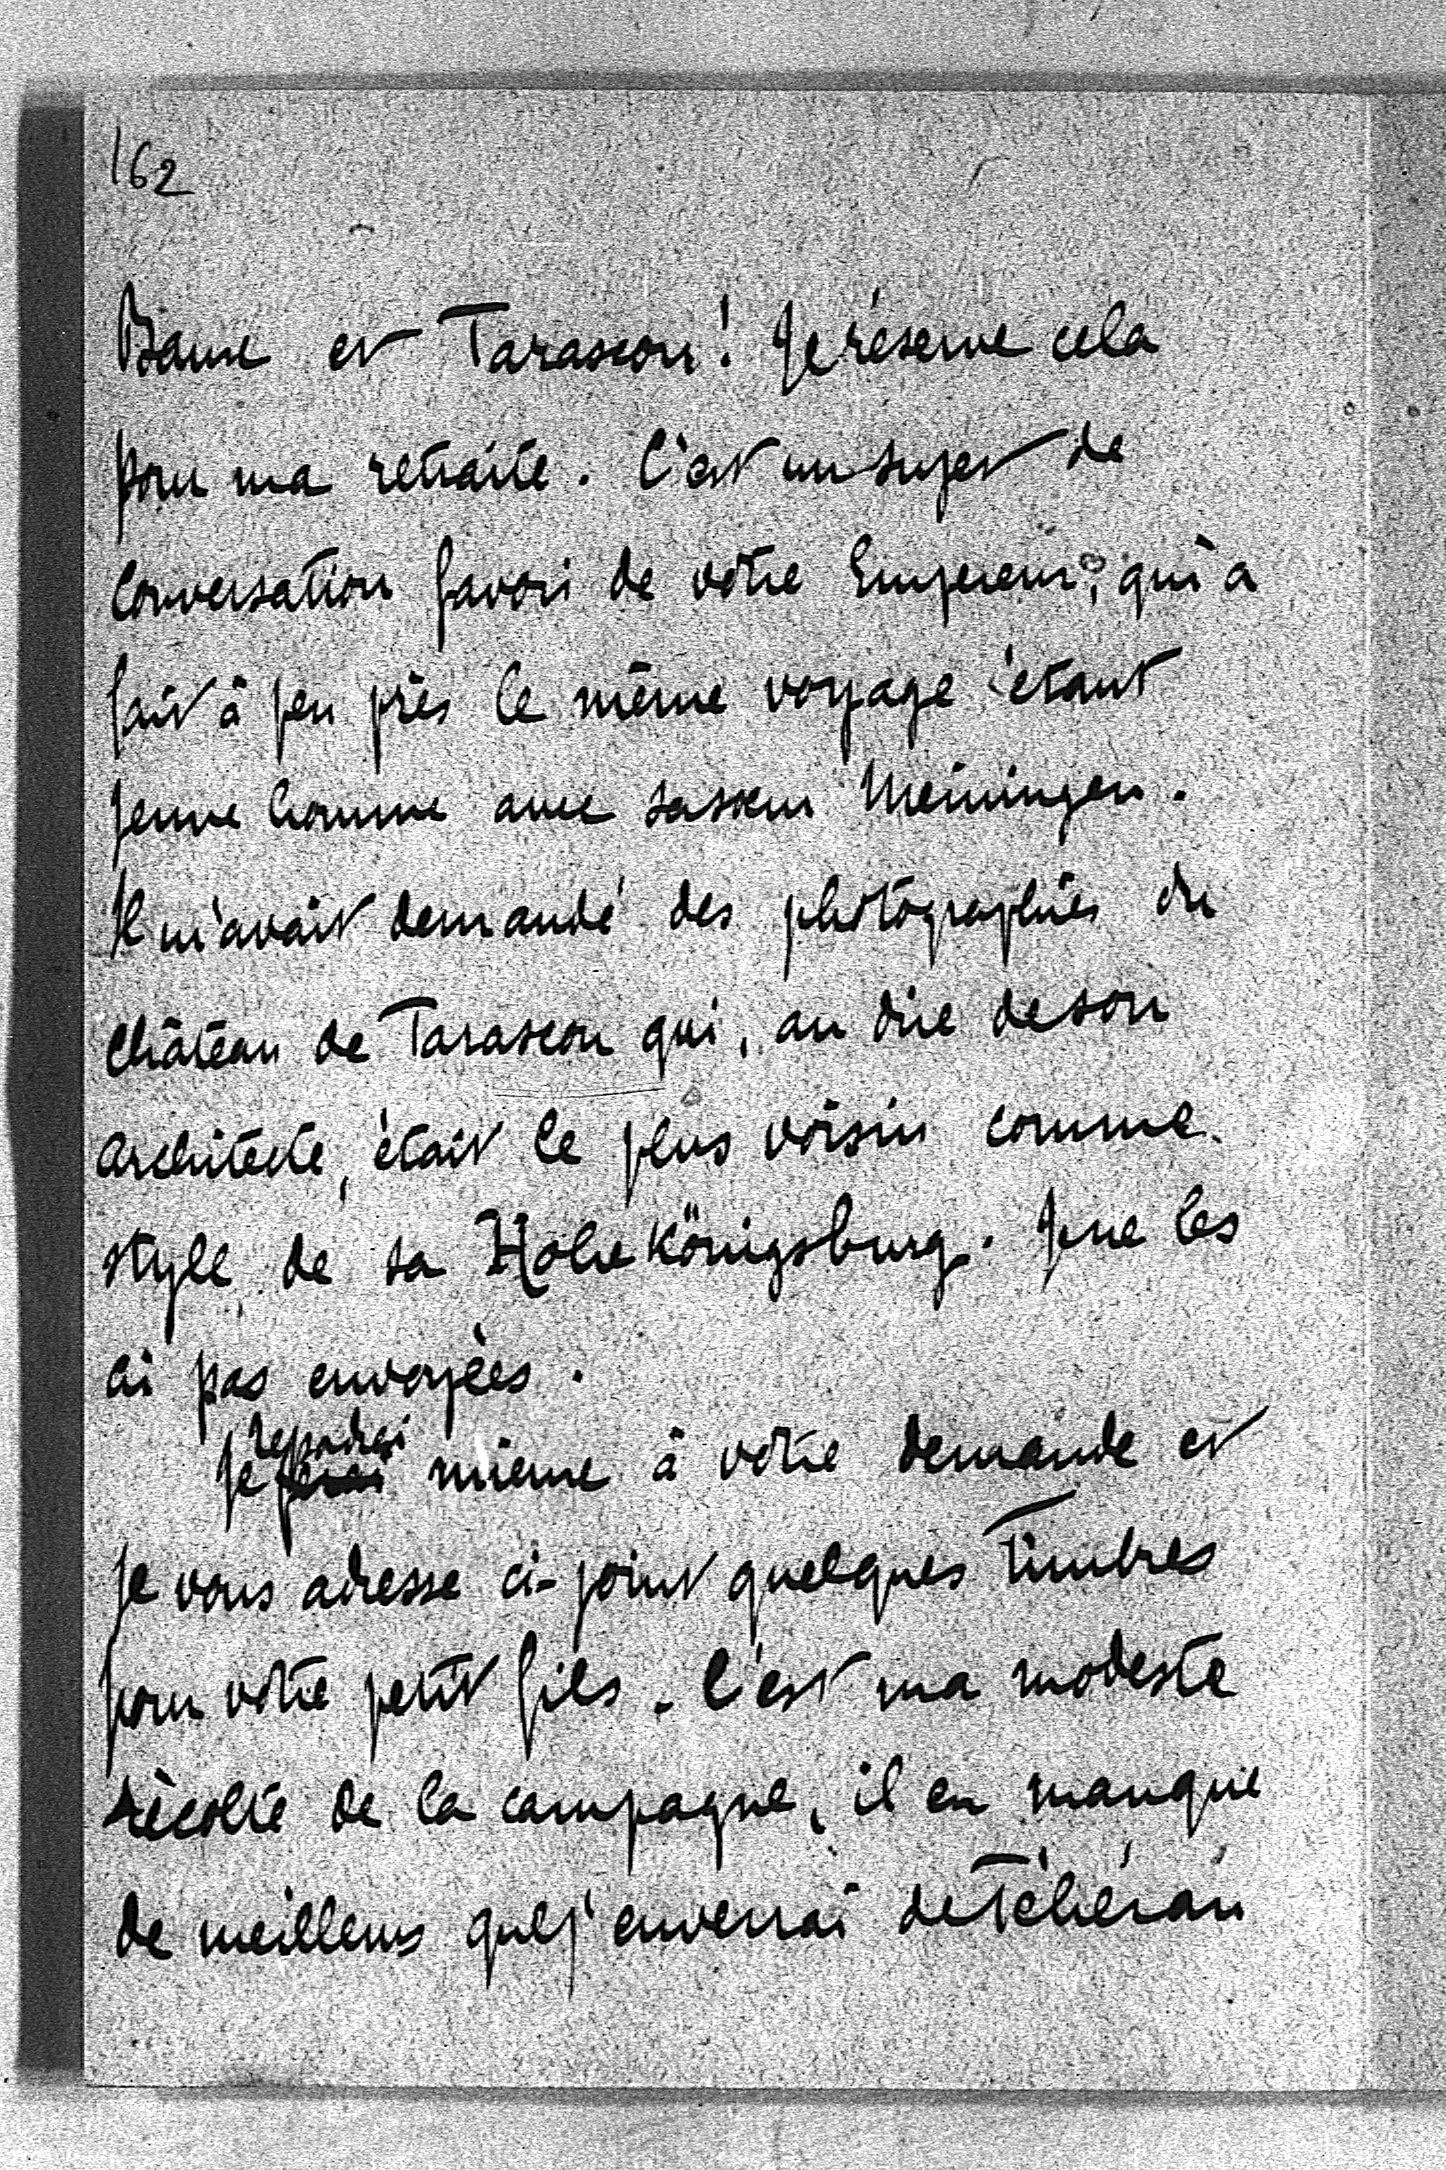 162
Beaune et Tarascon! Je réserve cela
pour ma retraite. C'est un sujet de
Conversation favori de votre Empereur, qui a
fait à peu près le même voyage étant
jeune homme avec sa sœur Meiningen.
Il m'avait demandé des photographies du
Château de Tarascon qui, au dire de son
architecte, était le plus voisin comme
style de sa Hohe Königsburg. Je ne les
ai pas envoyées.
Je répondrai même à votre demande et
je vous adresse ci-joint quelques timbres
pour votre petit fils. C'est ma modeste
récolte de la campagne, il en manque
de meilleurs que j'enverrai de Téhéran